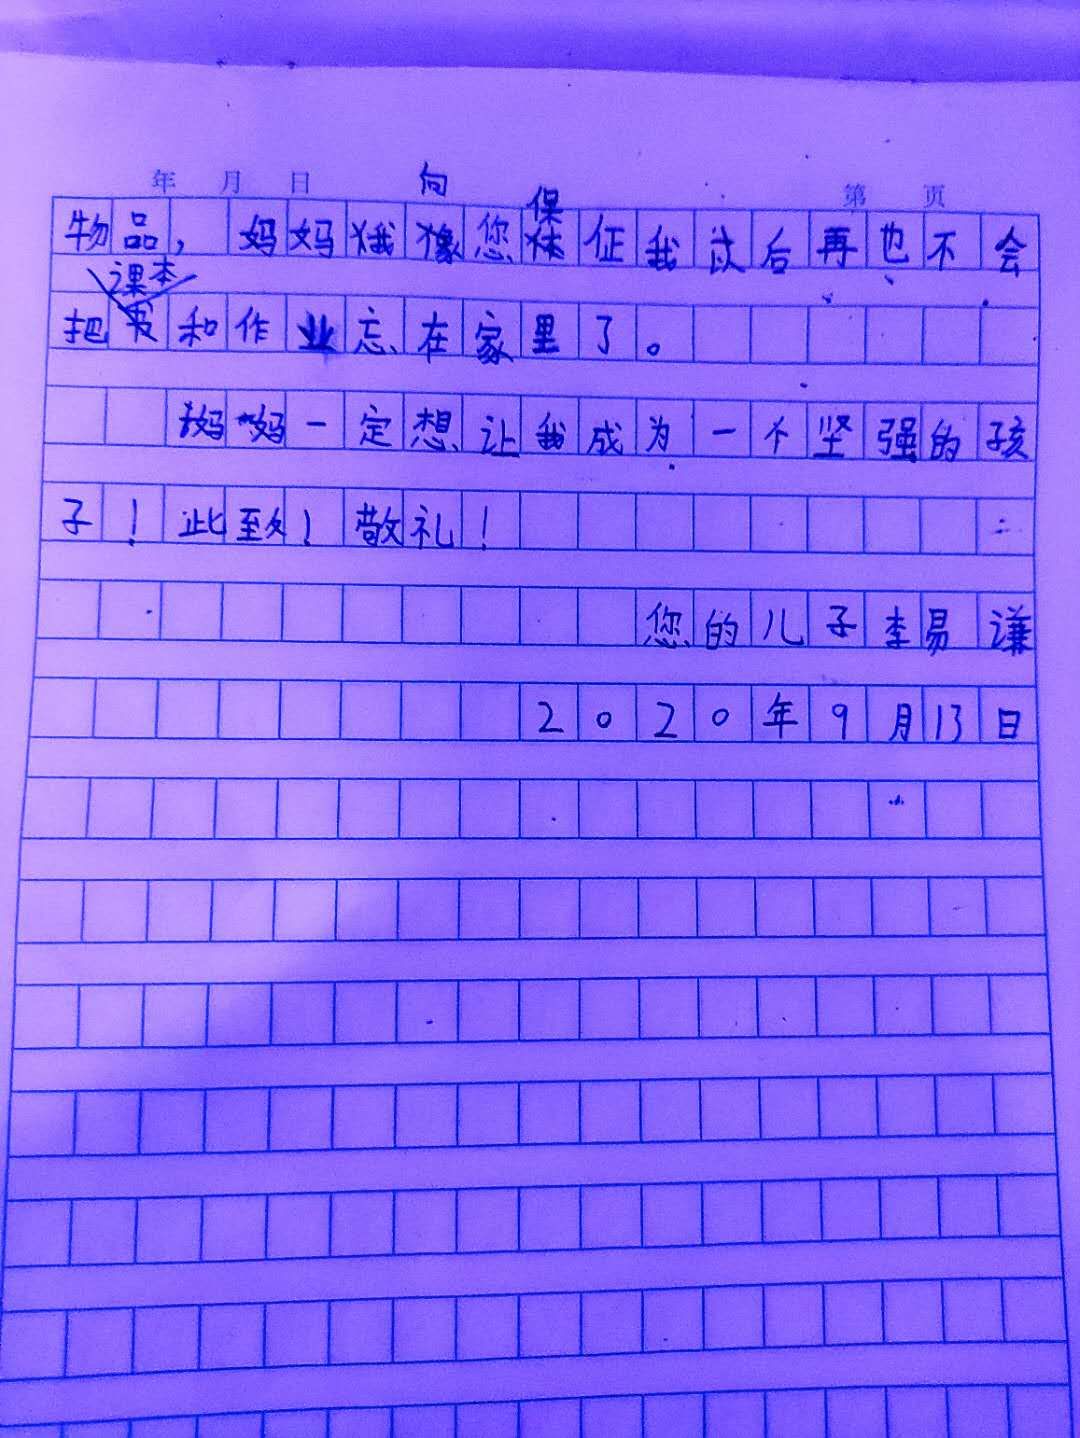 年 月 日 第 页
向 保
物品，妈妈我像您保征我以后再也不会
课本
把书和作业忘在家里了。
妈妈一定想让我成为一个坚强的孩
子！此致！敬礼！
您的儿子李易谦
2020年9月13日